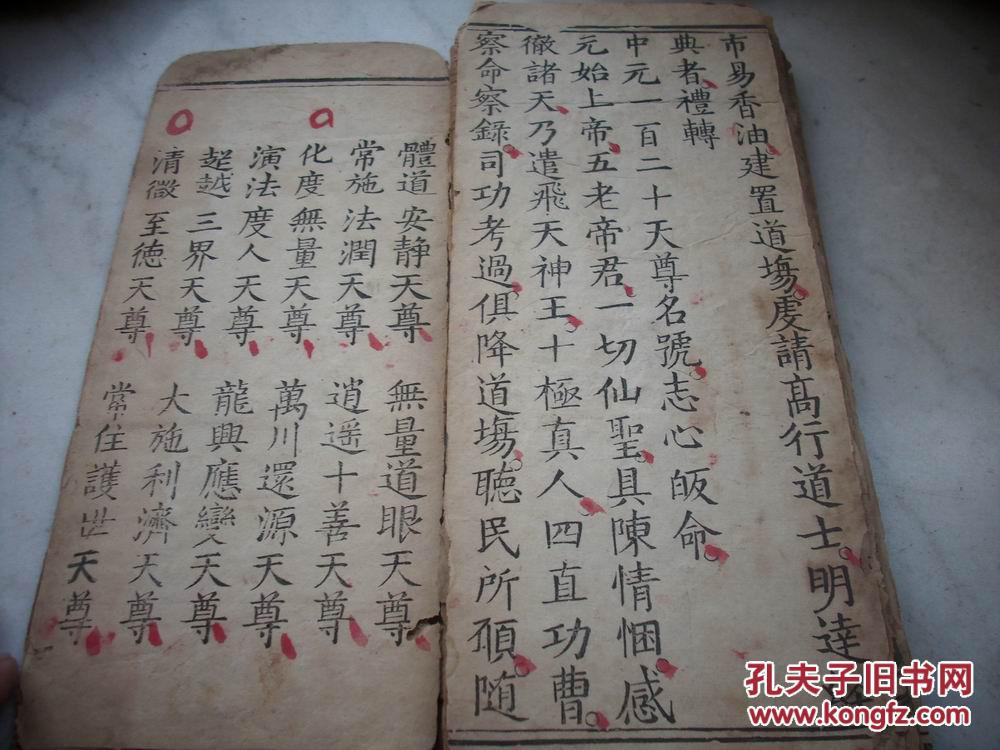 市易香油。建置道塲。虔請高行道士。明達
典者。禮轉
中元一百二十天尊名號。志心皈命。
元始上帝。五老帝君。一切仙聖。具陳情悃。感
徹諸天。乃遣飛天神王。十極真人。四直功曹。
察命察錄。司功考過。俱降道塲。聴民所願。随
體道安静天尊 無量道眼天尊
常施法潤天尊 逍遥十善天尊
化度無量天尊 萬川還源天尊
演法度人天尊 龍興應變天尊
超越三界天尊 大施利濟天尊
清微至徳天尊 常住護世天尊
孔夫子旧书网
www.kongfz.com